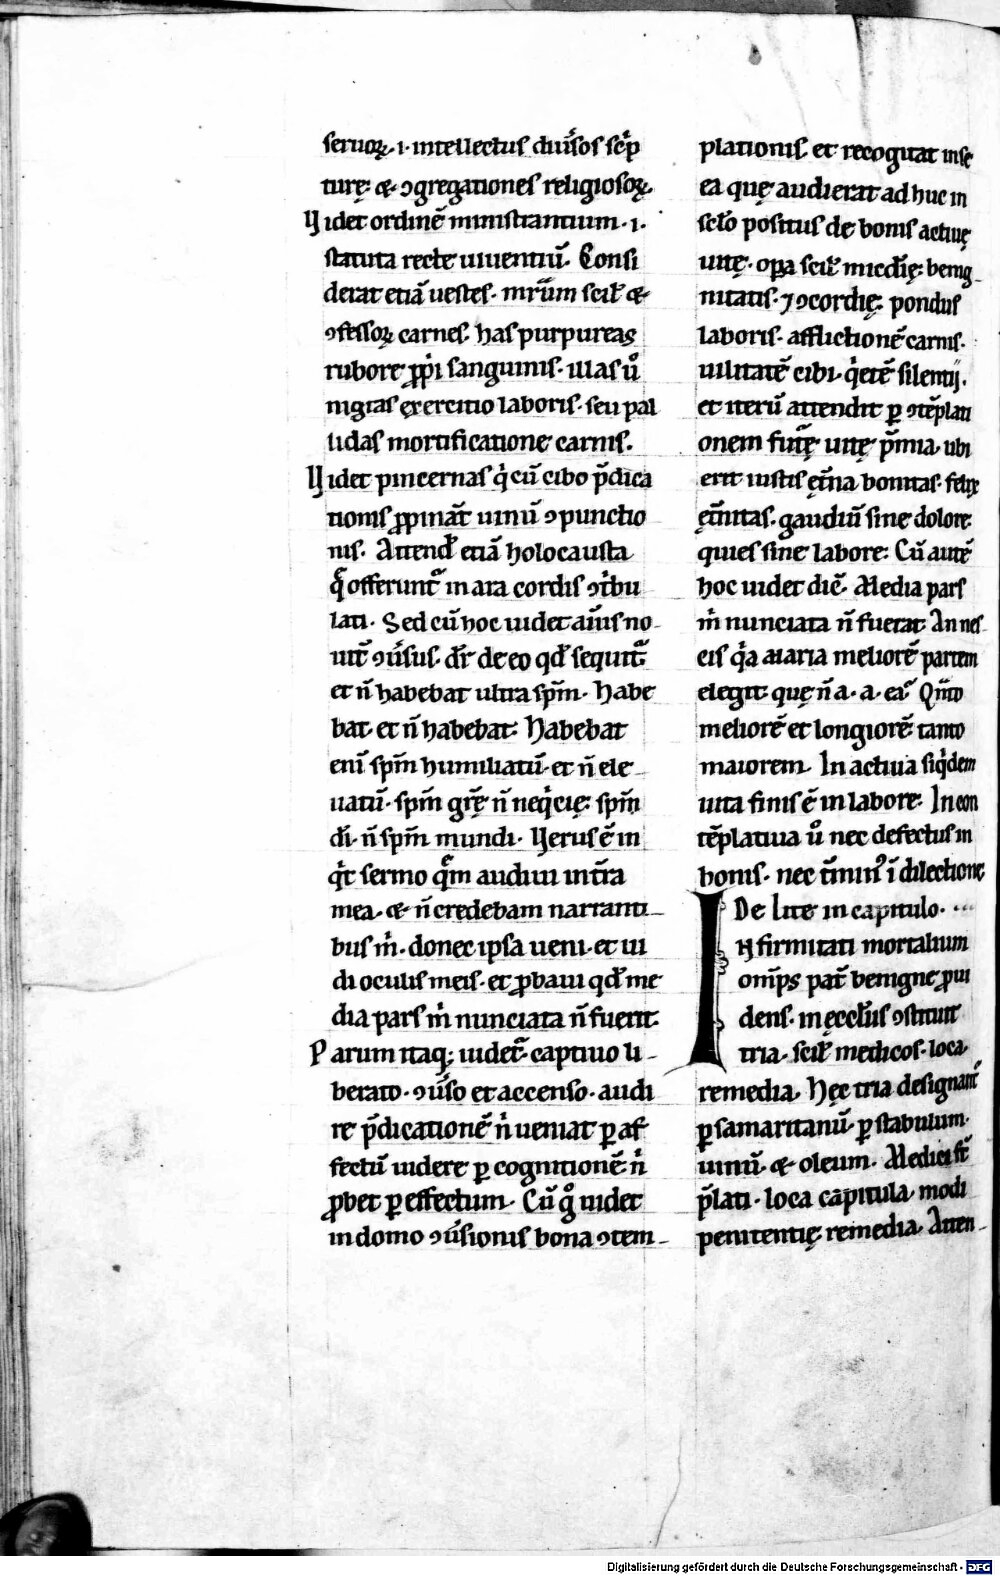 seruoꝝ .i. intellectus diu̾sos sc̾p
turę. ⁊ ꝯgregationes religiosoꝝ.
Uidet ordinē ministrantium .i.
statuta recte uiuentiū. Consi
derat etiā uestes. mr̄um scil̄ ⁊
ꝯfessoꝝ carnes. has purpureas
rubore ꝓpͥi sanguinis. illas uͦ
nigras exercitio laboris. seu pal
lidas mortificatione carnis.
Uidet pincernas qͥ cū cibo p̄dica
tionis ꝓpināt uinū ꝯpunctio
nis. Attend̄ etiā holocausta
qͣ offerunt᷑ in ara cordis ꝯtͥbu
lati. Sed cū hoc uidet aīus no-
uit̄ ꝯu̾sus. dr̄ de eo qd̄ sequit᷑.
et n̄ habebat ultra sp̄m. Habe
bat. et n̄ habebat. Habebat
enī sp̄m humiliatū. et n̄ ele-
uatū. sp̄m gr̄ę n̄ neqͥcię. sp̄m
dī. n̄ sp̄m mundi. Uerus ē in
qͥt sermo quē audiui in tr̄a
mea. ⁊ n̄ credebam narranti-
bus m̄. donec ipsa ueni. et ui
di oculis meis. et ꝓbaui qd̄ me
dia pars m̄ nunciata n̄ fuerit.
Parum itaqꝫ uidet᷑. captiuo li-
berato. ꝯu̾so et accenso. audi
re p̄dicationē nͥ ueniat ꝑ af
fectū uidere ꝑ cognitionē nͥ
ꝓbet ꝑ effectum. Cū gͦ uidet
in domo ꝯu̾sionis bona ꝯtem-
plationis. et recogitat in se
ea quę audierat ad huc in
sc̄lo positus de bonis actiuę
uitę. oꝑa scil̄ mīcdię. benig-
nitatis. ⁊ ꝯcordię. pondus
laboris. afflictionē carnis.
uilitatē cibi. qͥetē silentij.
et iterū attendit ꝑ ꝯtēplati
onem futͣę uitę p̄mia. ubi
erit iustis et̄na bonitas. felix
et̄nitas. gaudiū sine dolore.
quies sine labore. Cū autē
hoc uidet dic̄. Media pars
m̄ nunciata n̄ fuerat. An nes
cis qͥa maria meliorē partem
elegit. quę n̄ a. a. ea. Qn̄to
meliorē et longiorē tanto
maiorem. In actiua siqͥdem
uita finis ē in labore. In con
tēplatiua uͦ nec defectus in
bonis. nec t̄minꝰ ī dilectione.
De lite in capitulo. ...
INfirmitati mortalium
om̄ps pat̄ benigne ꝓui
dens. in ęccl̄iis ꝯstituit
tria. scil̄ medicos. loca.
remedia. Hęc tria designant᷑
ꝑ samaritanū. ꝑ stabulum.
uinū. ⁊ oleum. Medici st̄
p̄lati. loca capitula. modi
penitentię remedia. Atten-
Digitalisierung gefördert durch die Deutsche Forschungsgemeinschaft - DFG